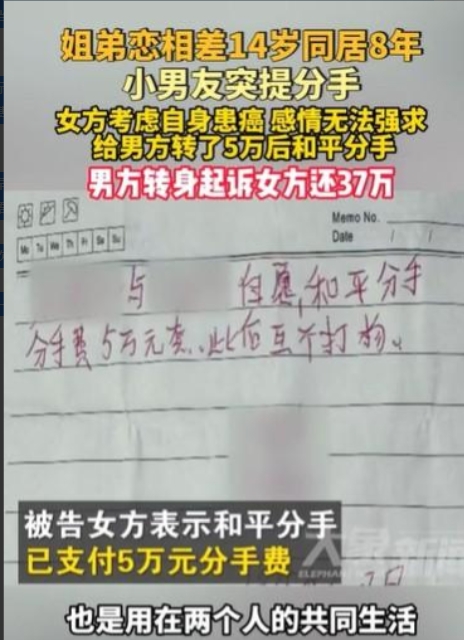 姐弟恋相差14岁同居8年
小男友突提分手
女方考虑自身患癌 感情无法强求
给男方转了5万后和平分手
男方转身起诉女方还37万
Memo No.
Mo Tu We Th Fr Sa Su
Date / /
与 自愿,和平分手
分手费5万元整、此后互不打扰。
被告女方表示和平分手
已支付5万元分手费
大象新闻
ELEPHANT
也是用在两个人的共同生活